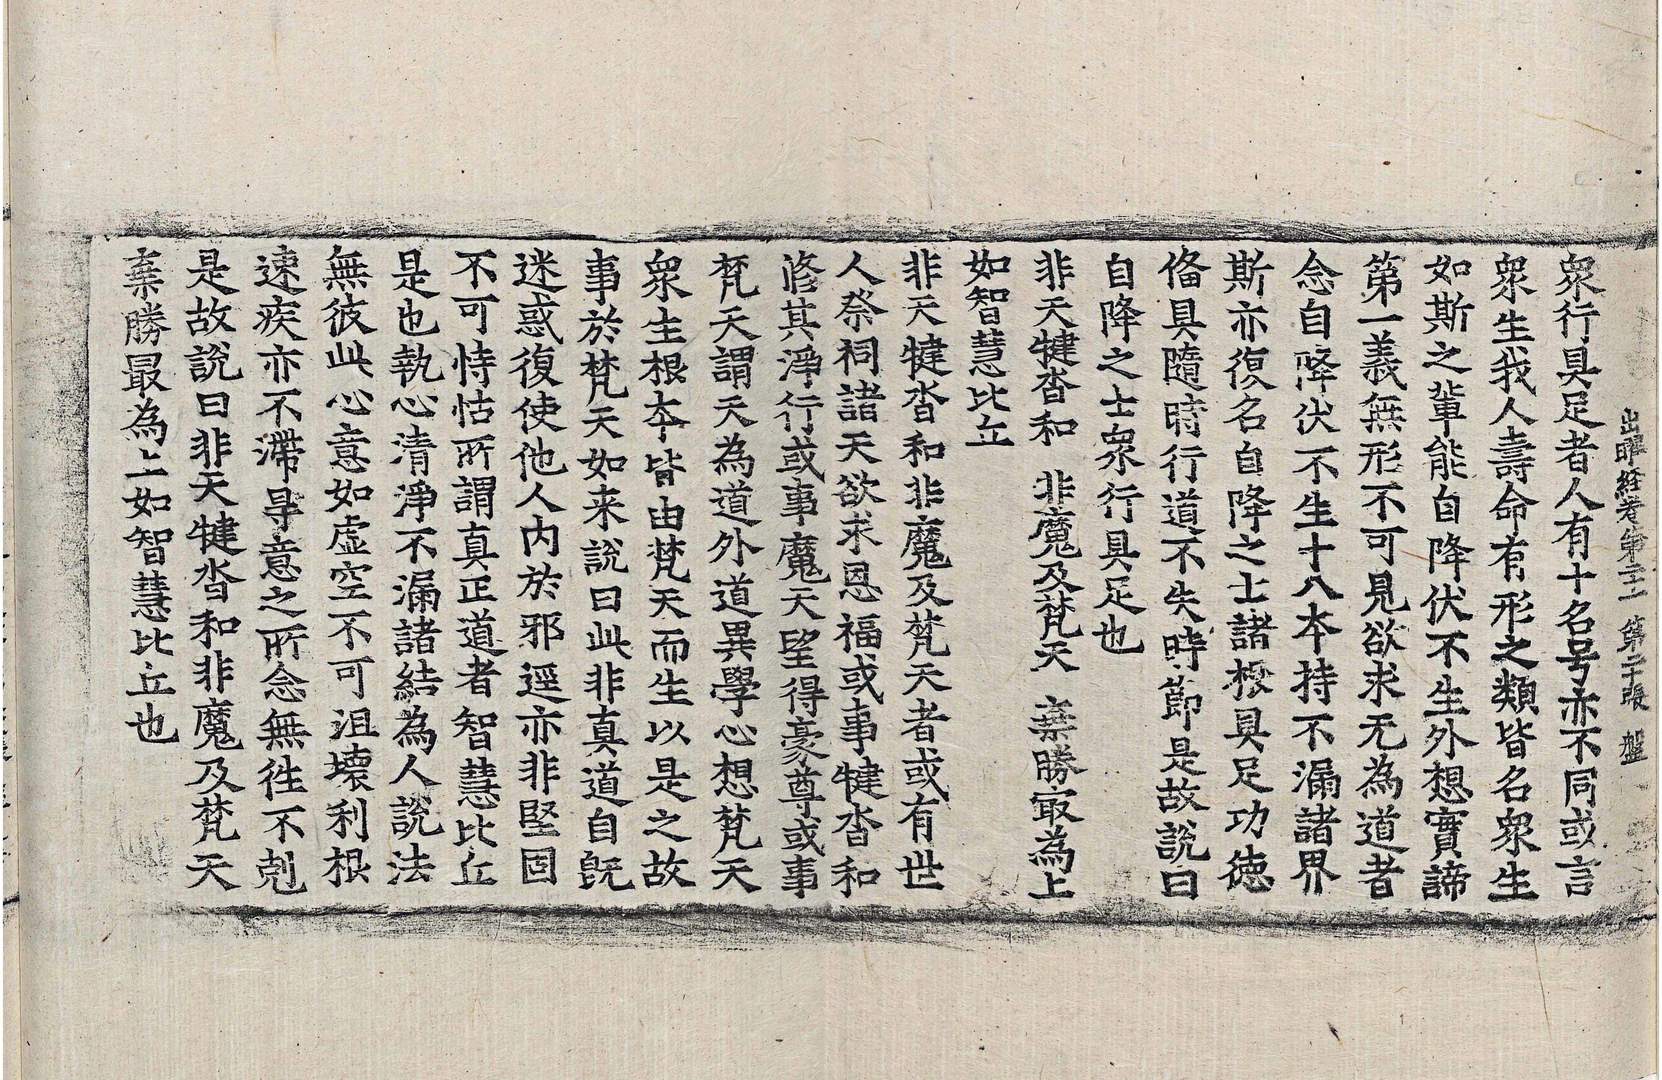 出曜経卷第二十一 第二十張 盤
衆行具足者人有十名号亦不同或言
衆生我人壽命有形之類皆名衆生
如斯之輩能自降伏不生外想實諦
第一義無形不可見欲求无為道者
念自降伏不生十八本持不漏諸界
斯亦復名自降之士諸根具足功徳
俻具隨時行道不失時節是故說曰
自降之士衆行具足也
非天犍沓和 非魔及梵天 棄勝㝡為上
如智慧比丘
非天犍沓和非魔及梵天者或有世
人祭祠諸天欲求恩福或事犍沓和
修其淨行或事魔天望得豪尊或事
梵天謂天為道外道異學心想梵天
衆生根本皆由梵天而生以是之故
事於梵天如来說曰此非真道自旣
迷惑復使他人内於邪逕亦非堅固
不可恃怙所謂真正道者智慧比丘
是也執心清淨不漏諸結為人說法
無彼此心意如虛空不可沮壊利根
速疾亦不滯㝵意之所念無徃不剋
是故說曰非天犍沓和非魔及梵天
棄勝最為上如智慧比丘也